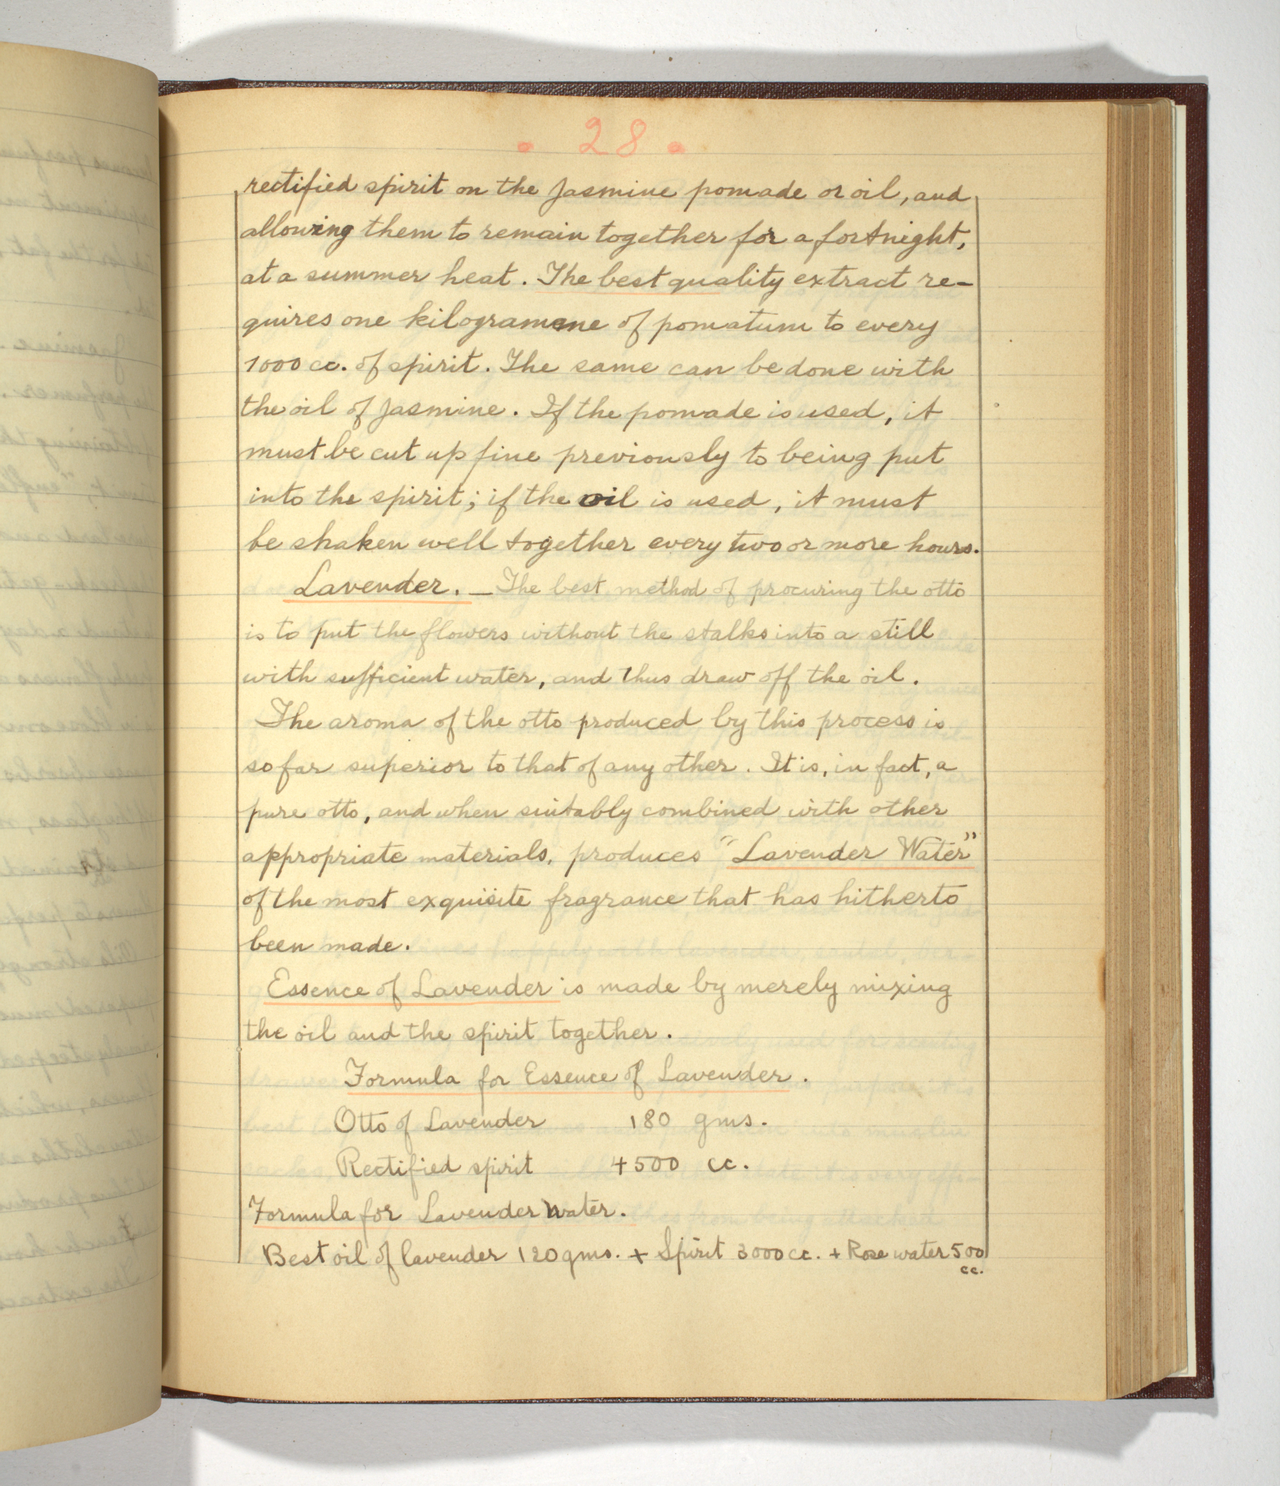 • 28 •
rectified spirit on the Jasmine pomade or oil, and
allowing them to remain together for a fortnight,
at a summer heat. The best quality extract re-
quires one kilogramme of pomatum to every
1000 cc. of spirit. The same can be done with
the oil of Jasmine. If the pomade is used, it
must be cut up fine previously to being put
into the spirit; if the oil is used, it must
be shaken well together every two or more hours.
Lavender. — The best method of procuring the otto
is to put the flowers without the stalks into a still
with sufficient water, and thus draw off the oil.
The aroma of the otto produced by this process is
so far superior to that of any other. It is, in fact, a
pure otto, and when suitably combined with other
appropriate materials, produces "Lavender Water"
of the most exquisite fragrance that has hitherto
been made.
Essence of Lavender is made by merely mixing
the oil and the spirit together.
Formula for Essence of Lavender.
Otto of Lavender 180 gms.
Rectified spirit 4500 cc.
Formula for Lavender Water.
Best oil of lavender 120 gms. + Spirit 3000 cc. + Rose water 500
cc.